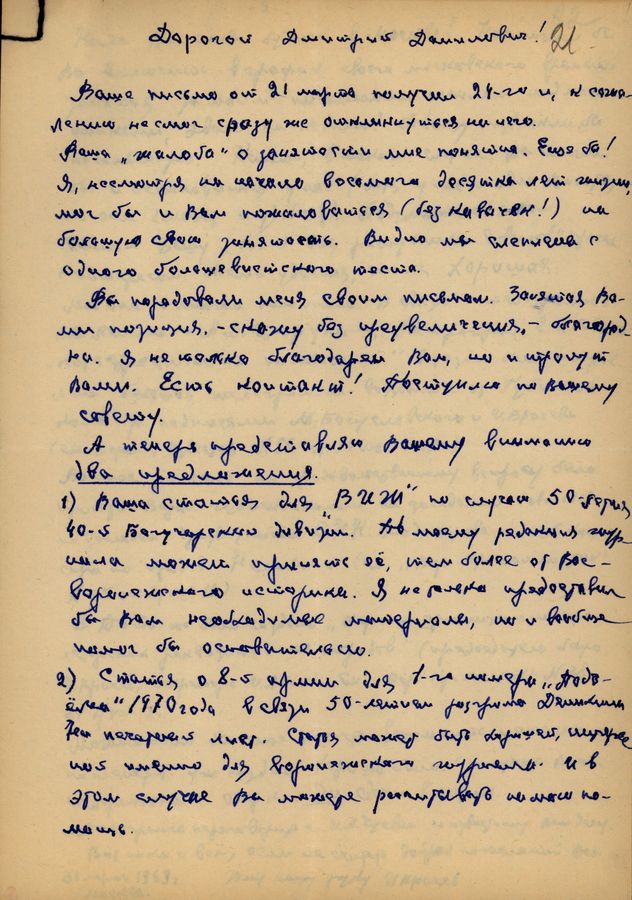 Дорогой Дмитрий Данилович! 21
Ваше письмо от 21 марта получил 24-го и, к сожа-
лению не смог сразу же откликнуться на него.
Ваша „жалоба" о занятости мне понятна. Еще бы!
Я, несмотря на начало восьмого десятка лет жизни,
мог бы и Вам пожаловаться (без кавычек!) на
большую свою занятость. Видно мы слеплены с
одного большевистского теста.
Вы порадовали меня своим письмом. Занятая Ва-
ми позиция, - скажу без преувеличения, - благород-
на. Я не только благодарен Вам, но и тронут
Вами. Есть контакт! Поступил по Вашему
совету.
А теперь представляю Вашему вниманию
два предложения.
1) Ваша статья для „ВИЖ" по случаю 50-летия
40-й Богучарской дивизии. По моему редакция жур-
нала может принять её, тем более от Во-
воронежского историка. Я не только предоставил
бы Вам необходимые материалы, но и вообще
помог бы основательно.
2) Статья о 8-й армии для 1-го номера „Подъ-
ёма" 1970 года в связи 50-летием разгрома Деникина
печатный лист. Статья может быть хорошей, интерес-
ной именно для воронежского журнала. И в
этом случае Вы можете рассчитывать на мою по-
мощь.